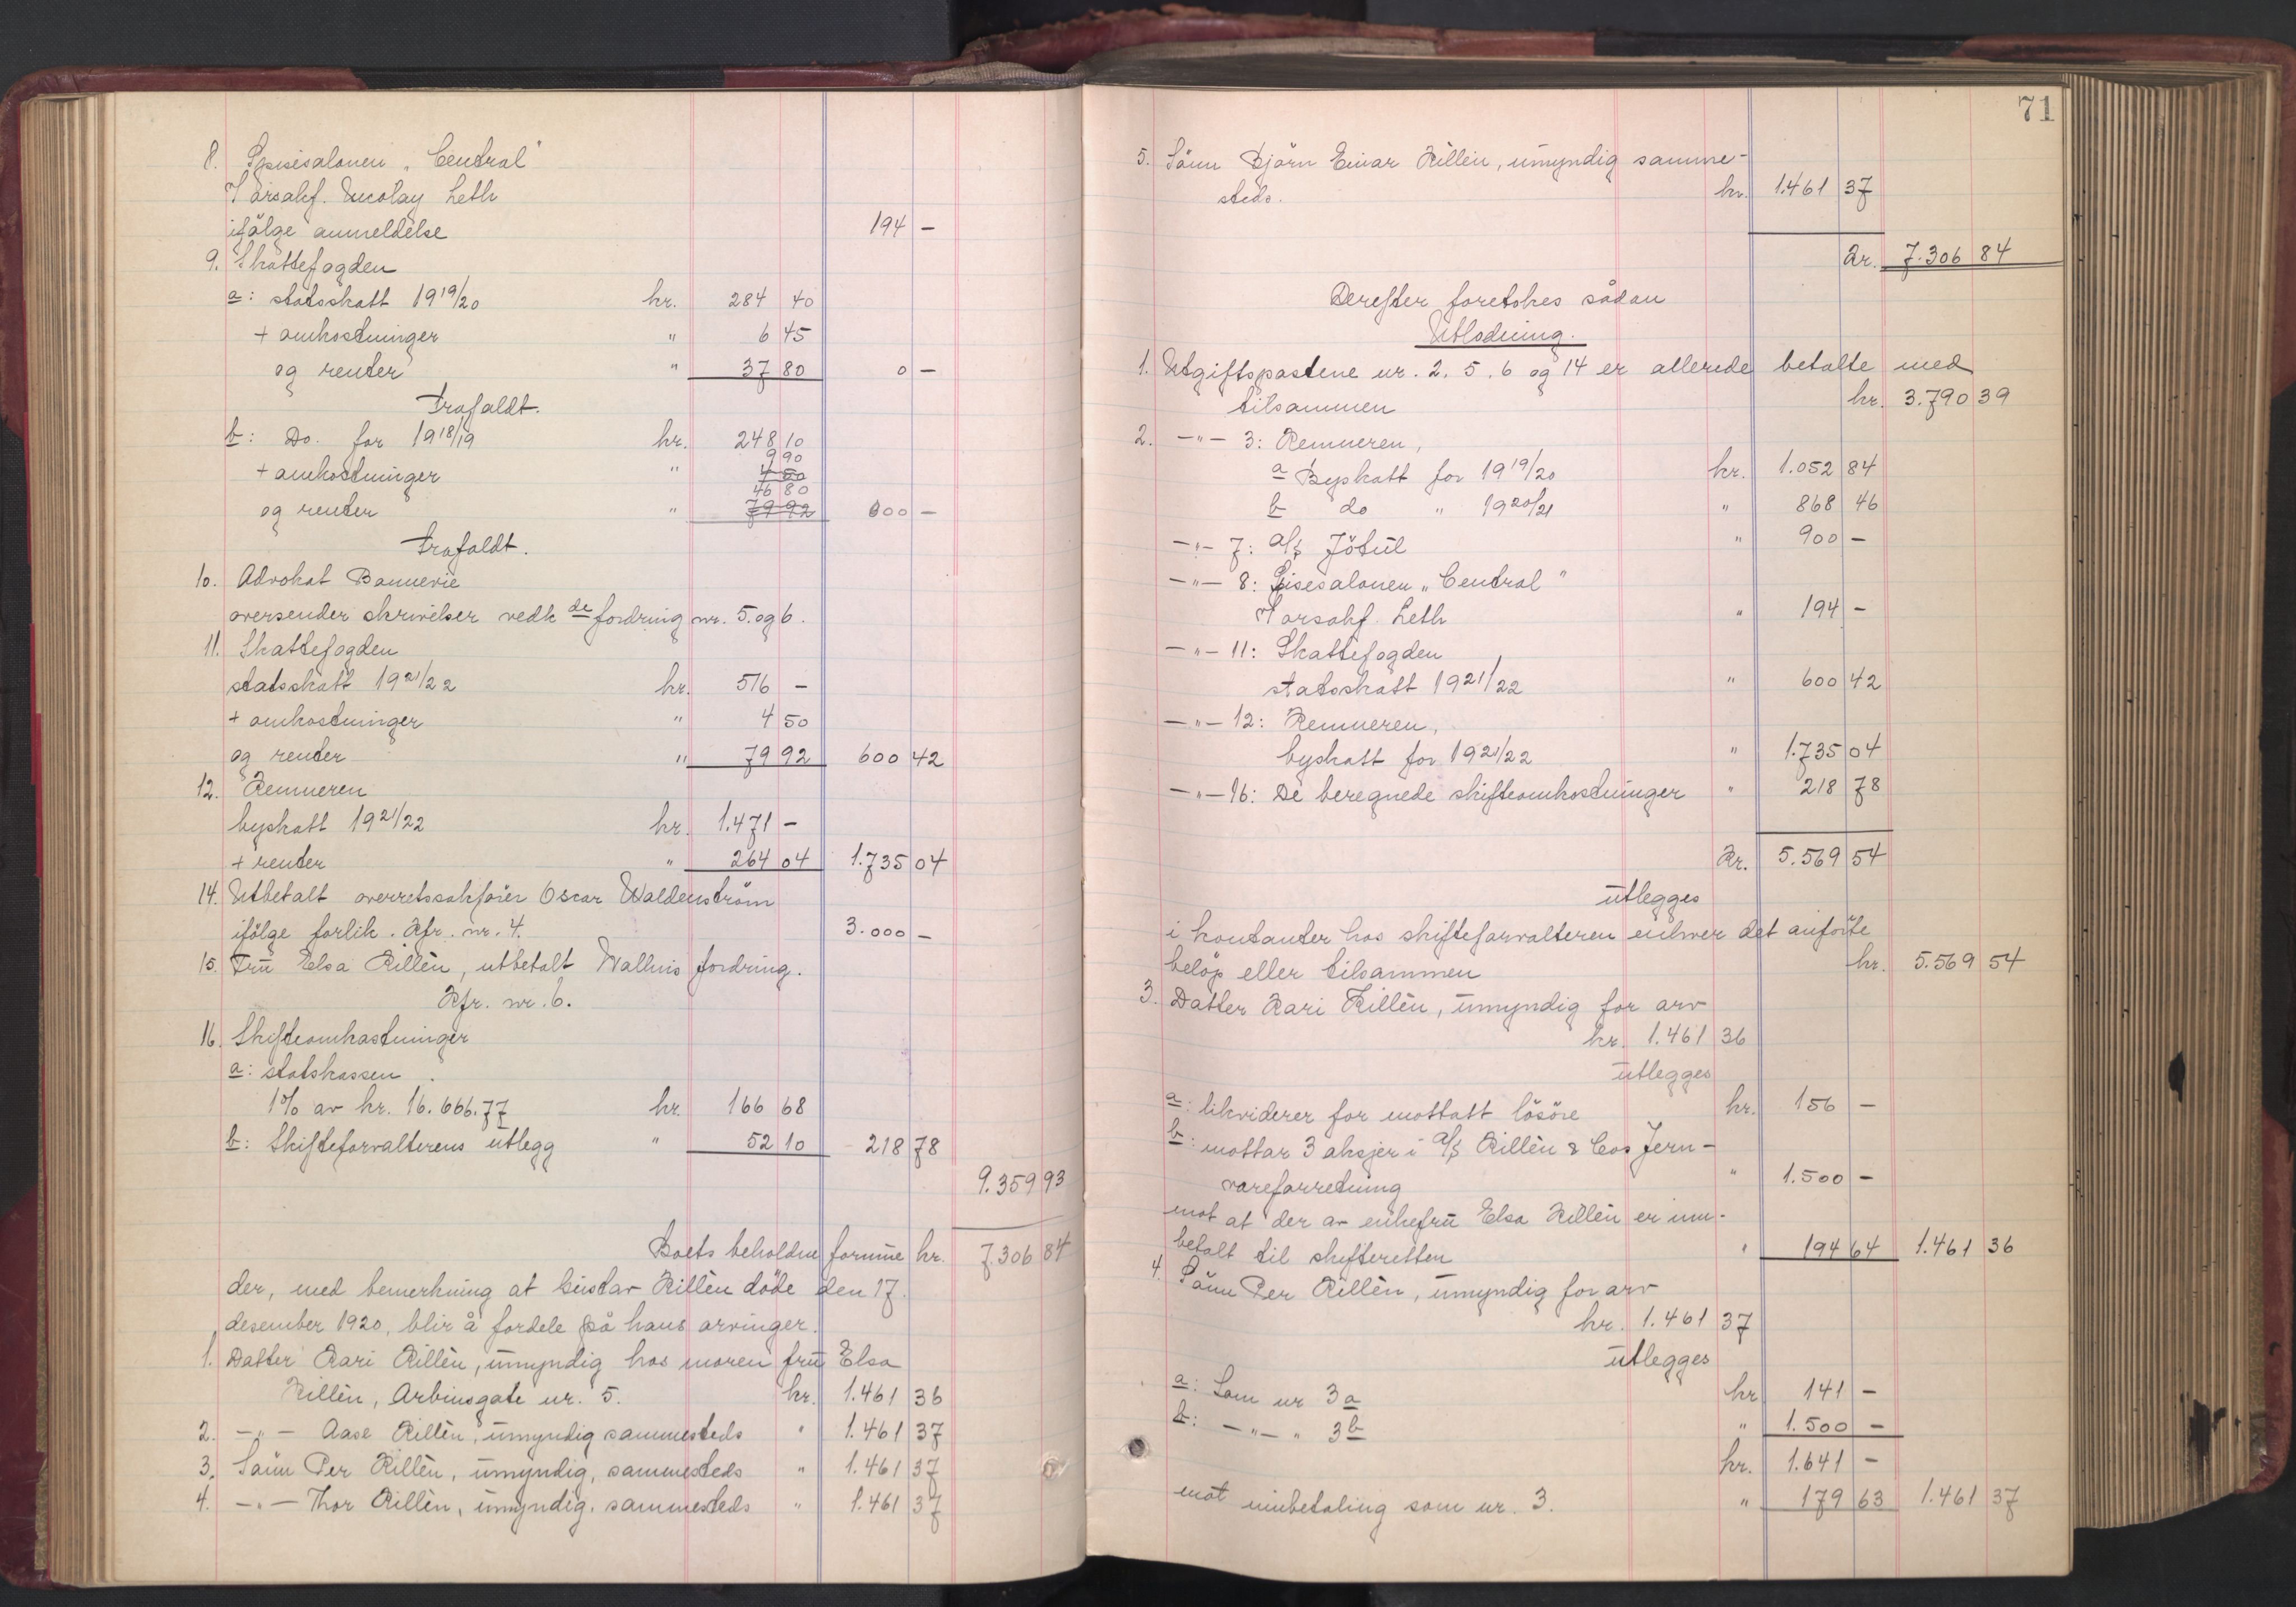 8. Spisesalonen „Central"
V/orsakf. Nicolay Leth
ifölge anmeldelse 194 —
9. Skattefogden
a: statsskatt 1919/20 kr. 284 40
+ omkostninger " 6 45
og renter " 37 80 0 —
Frafaldt.
b: Do. for 1918/19 kr. 248 10
9 90
+ omkostninger " 4 50
46 80
og renter " 79 92 000 —
Frafaldt.
10. Advokat Bannevie
oversender skrivelser vedk de fordring nr. 5. og 6.
11. Skattefogden
statsskatt 1921/22 kr. 516 —
+ omkostninger " 4 50
og renter " 79 92 600 42
12. Kemneren
byskatt 1921/22 kr. 1.471 —
+ renter " 264 04 1.735 04
14. Utbetalt overretssakförer Oscar Waldenström
ifölge forlik. Kfr. nr. 4. 3.000 —
15. Fru Elsa Killén, utbetalt Wallins fordring.
Kfr. nr. 6.
16. Skifteomkostninger
a: statskassen
1% av kr. 16.666.77 kr. 166 68
b: Skifteforvalterens utlegg " 52 10 218 78
9.359 93
Boets beholdne formue kr. 7.306 84
der, med bemerkning at Gustav Killén döde den 17.
desember 1920, blir å fordele på hans arvinger.
1. Datter Kari Killén, umyndig hos moren fru Elsa
Killén, Arbinsgate nr. 5. kr. 1.461 36
2. —"— Aase Killén, umyndig sammesteds " 1.461 37
3. Sönn Per Killén, umyndig, sammesteds " 1.461 37
4. —"— Thor Killén, umyndig, sammesteds " 1.461 37
71
5. Sönn Björn Einar Killén, umyndig samme-
steds. kr. 1.461 37
Kr. 7.306 84
Derefter foretokes sådan
Utlodning.
1. Utgiftspostene nr. 2. 5. 6 og 14 er allerede betalte med
tilsammen kr. 3.790 39
2. —"— 3: Kemneren,
a Byskatt for 1919/20 kr. 1.052 84
b do " 1920/21 " 868 46
—"— 7: A/S Jötul " 900 —
—"— 8: Spisesalonen „Central"
V/orsakf. Leth " 194 —
—"— 11: Skattefogden
statsskatt 1921/22 " 600 42
—"— 12: Kemneren,
byskatt for 1921/22 " 1.735 04
—"— 16: De beregnede skifteomkostninger " 218 78
Kr. 5.569 54
utlegges
i kontanter hos skifteforvalteren enhver det anförte
belöp eller tilsammen kr. 5.569 54
3. Datter Kari Killén, umyndig for arv
kr. 1.461 36
utlegges
a: likviderer for mottatt lösöre kr. 156 —
b: mottar 3 aksjer i A/S Killén & Cos Jern-
vareforretning " 1.500 —
mot at der av enkefru Elsa Killén er inn-
betalt til skifteretten " 194 64 1.461 36
4. Sönn Per Killén, umyndig for arv
kr. 1.461 37
utlegges
a: Som nr 3a kr 141 —
b: —"— " 3b " 1.500 —
kr. 1.641 —
mot innbetaling som nr. 3. " 179 63 1.461 37